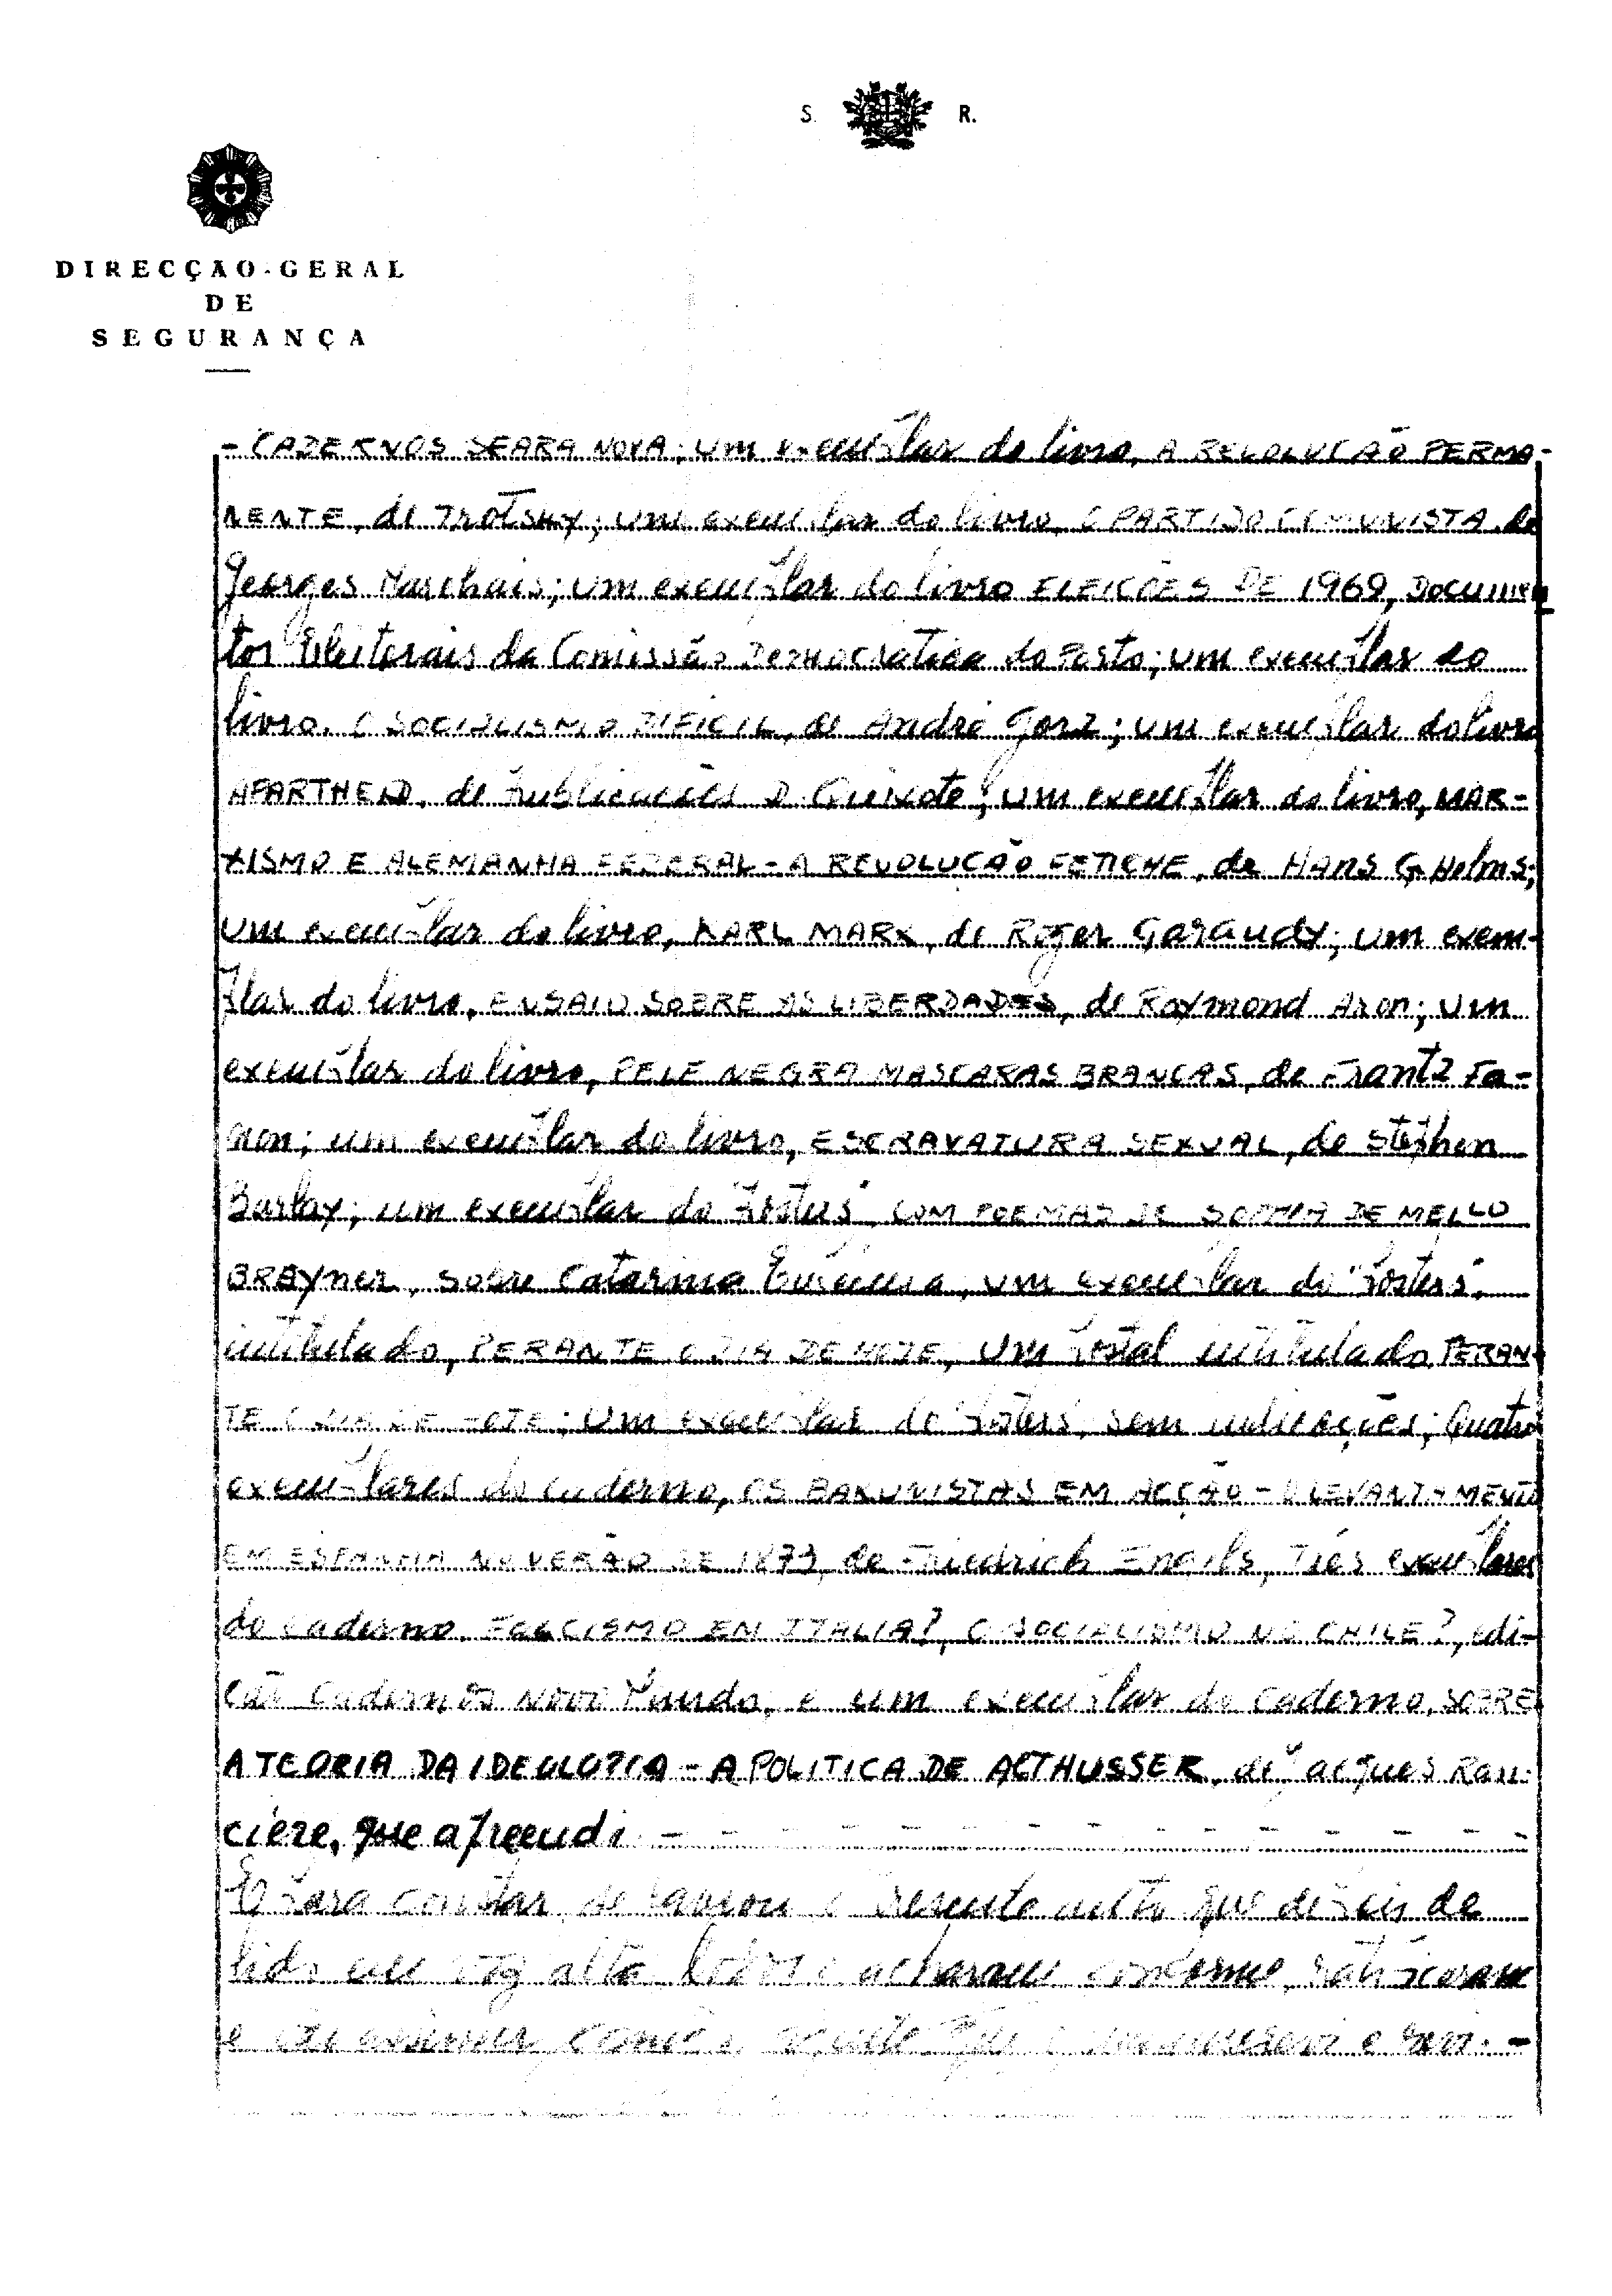 S. R.
DIRECÇÃO-GERAL
DE
SEGURANÇA
- CADERNOS SEARA NOVA; um exemplar do livro, A REVOLUÇÃO PERMA-
NENTE, de Trotsky; um exemplar do livro, O PARTIDO COMUNISTA, de
Georges Marchais; um exemplar do livro ELEIÇÕES DE 1969, Documen
tos Eleitorais da Comissão Democratica do Porto; um exemplar do
livro, O SOCIALISMO DIFICIL, de André Gorz; um exemplar do livro
APARTHEID, de Publicações D. Quixote; um exemplar do livro, MAR-
XISMO E ALEMANHA FEDERAL - A REVOLUÇÃO FETICHE, de Hans G. Helms;
um exemplar do livro, KARL MARX, de Roger Garaudy; um exem-
plar do livro, ENSAIO SOBRE AS LIBERDADES, de Raymond Aron; um
exemplar do livro, PELE NEGRA MASCARAS BRANCAS, de Frantz Fa-
non; um exemplar do livro, ESCRAVATURA SEXUAL, de Stephen
Barlay; um exemplar do "posters" COM POEMAS DE SOPHIA DE MELLO
BREYner, sobre Catarina Eufémia, um exemplar do "posters",
intitulado, PERANTE O DIA DE HOJE, um postal intitulado, PERAN-
TE O DIA DE HOJE; um exemplar do "posters", sem indicações; Quatro
exemplares do caderno, OS BAKUNISTAS EM ACÇÃO - O LEVANTAMENTO
EM ESPANHA NO VERÃO DE 1873, de Friedrich Engels, Três exemplares
do caderno, FASCISMO EN ITALIA?, O SOCIALISMO NO CHILE?, edi-
ção Cadernos Novo Mundo, e um exemplar do caderno, SOBRE
A TEORIA DA IDEOLOGIA - A POLITICA DE ALTHUSSER, de Jacques Ran-
ciere, que apreendi - - - - - - - - - - - - -
E para constar, se lavrou o presente auto que depois de
lido em voz alta, todos o acharam conforme, ratificaram
e vão assinar, comigo,